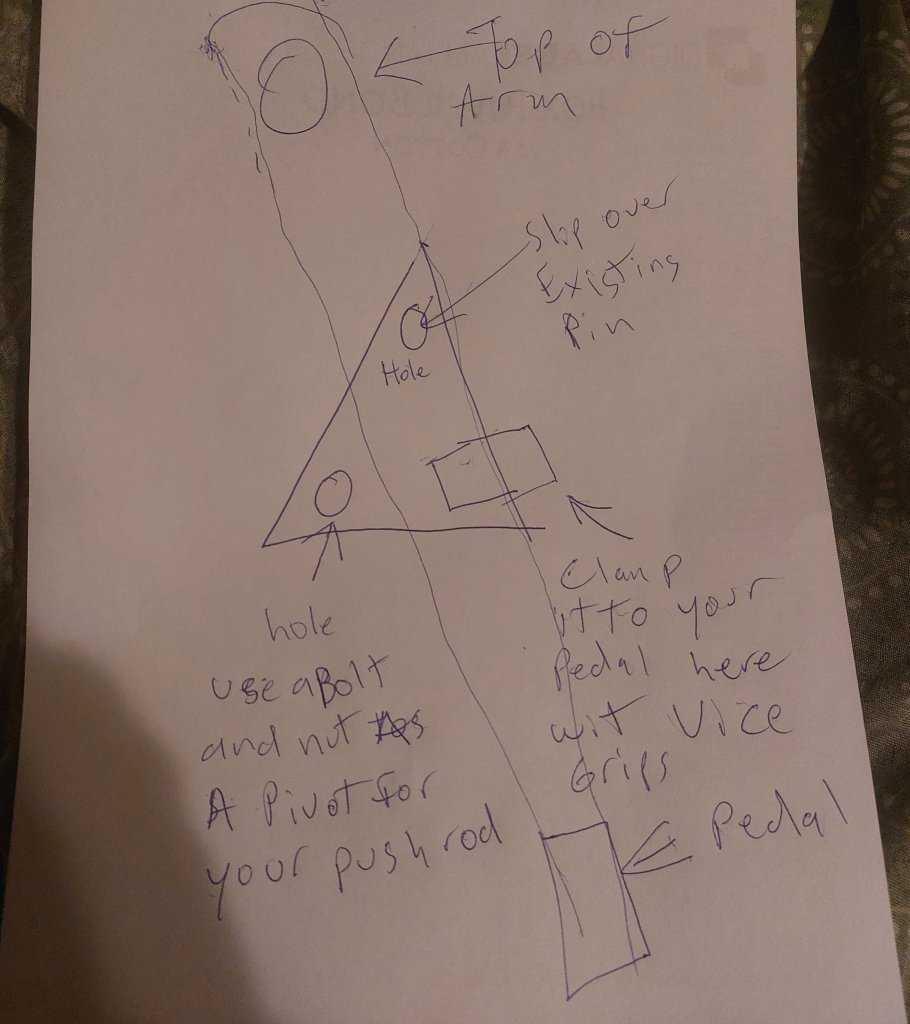 Top of
Arm
Slip over
Existing
Pin
Hole
Clamp
it to your
Pedal here
wit Vice
Grips
hole
use a Bolt
and nut as
A Pivot For
your push rod
Pedal